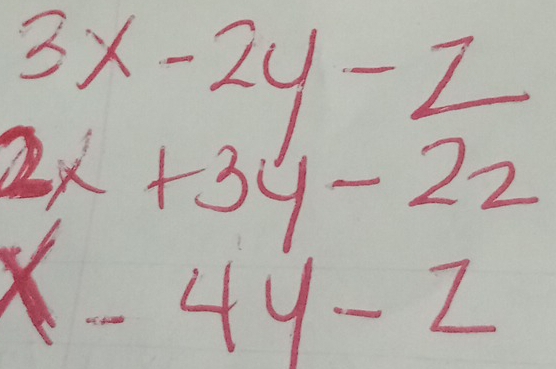 3x - 2y - z
2x + 3y - 2z
x - 4y - z